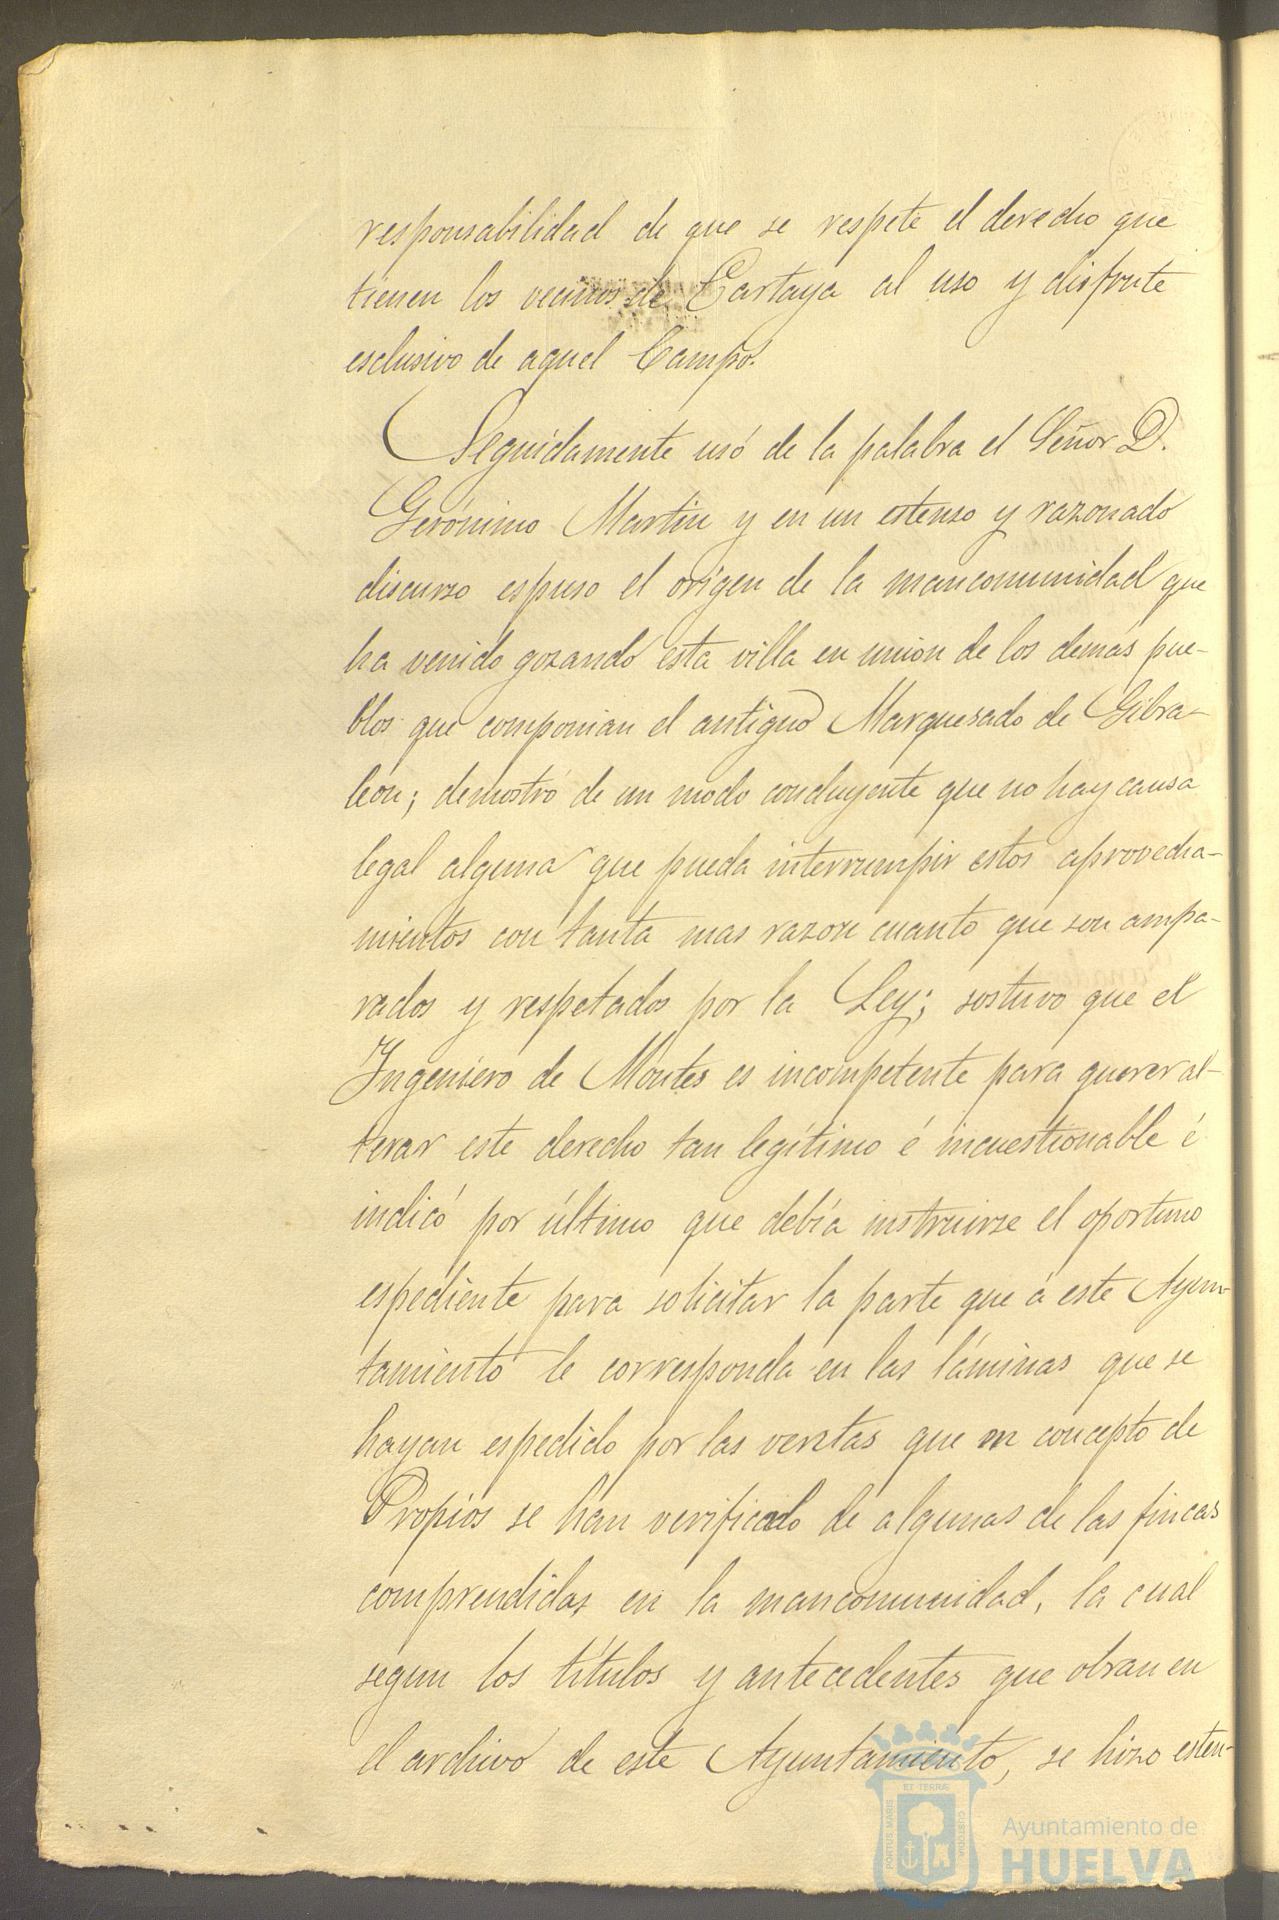 responsabilidad de que se respete el derecho que
tienen los vecinos de Cartaya al uso y disfrute
esclusivo de aquel Campo.
Seguidamente usó de la palabra el Señor D.
Gerónimo Martin y en un estenso y razonado
discurso espuso el origen de la mancomunidad que
ha venido gozando esta villa en union de los demás pue-
blos que componian el antiguo Marquesado de Gibra-
leon; demostró de un modo concluyente que no hay causa
legal alguna que pueda interrumpir estos aprovecha-
mientos con tanta mas razon cuanto que son ampa-
rados y respetados por la Ley; sostuvo que el
Ingeniero de Montes es incompetente para querer al-
terar este derecho tan legítimo é incuestionable é
indicó por último que debía instruirse el oportuno
espediente para solicitar la parte que á este Ayun-
tamiento le corresponda en las láminas que se
hayan espedido por las ventas que en concepto de
Propios se han verificado de algunas de las fincas
comprendidas en la mancomunidad, la cual
segun los títulos y antecedentes que obran en
el archivo de este Ayuntamiento, se hizo esten-
PORTUS MARIS ET TERRÆ CUSTODIA
Ayuntamiento de
HUELVA